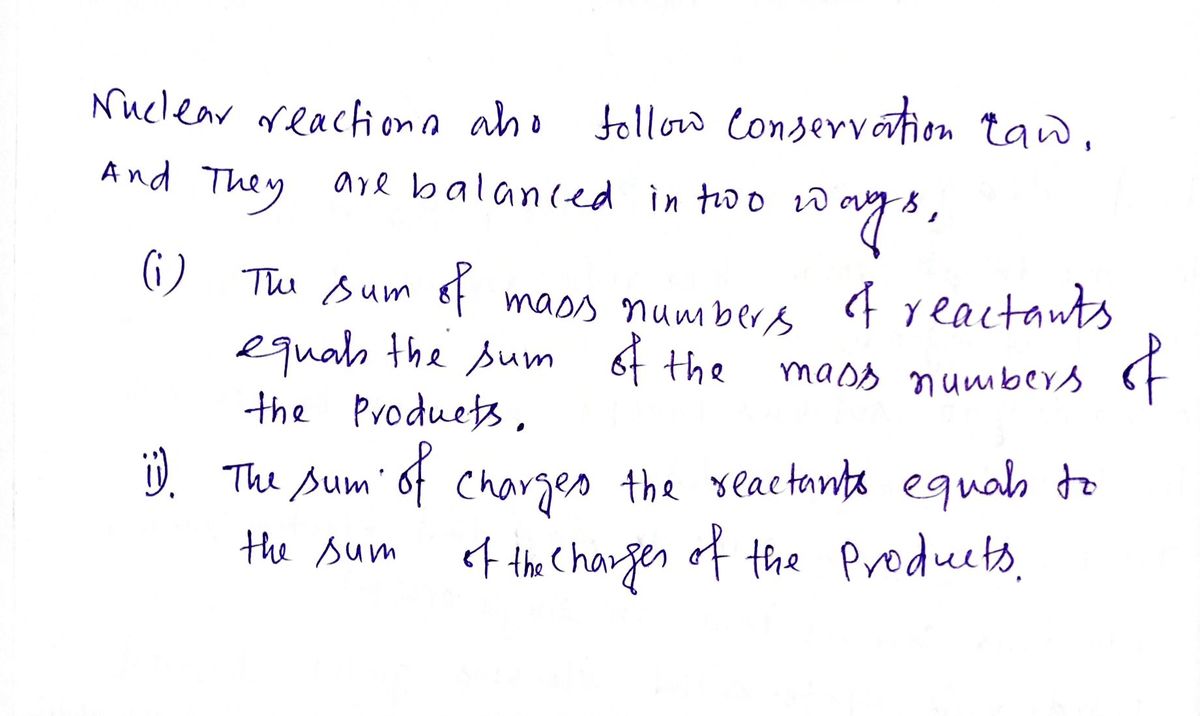 Nuclear reactions also follow Conservation law.
And They are balanced in two ways.
(i) The sum of mass numbers of reactants
equals the sum of the mass numbers of
the Products.
ii). The sum of charges the reactants equals to
the sum of the charges of the Products.